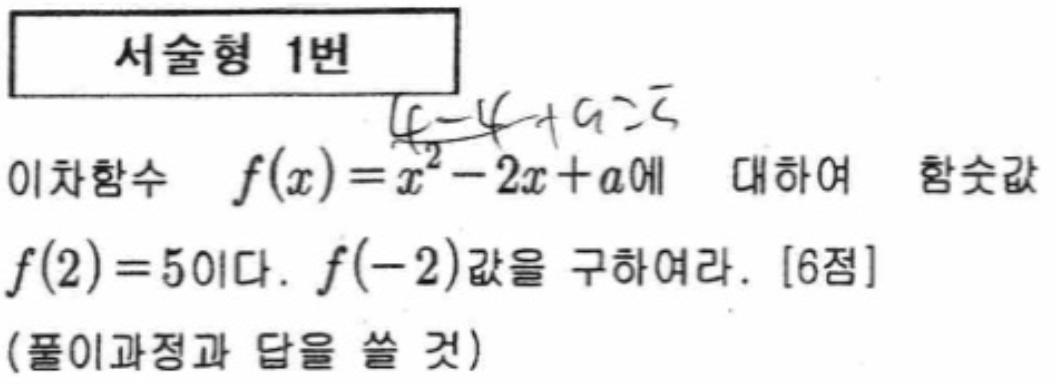 서술형 1번
4-4+a=5
이차함수 f(x)=x²-2x+a에 대하여 함숫값
f(2)=5이다. f(-2)값을 구하여라. [6점]
(풀이과정과 답을 쓸 것)